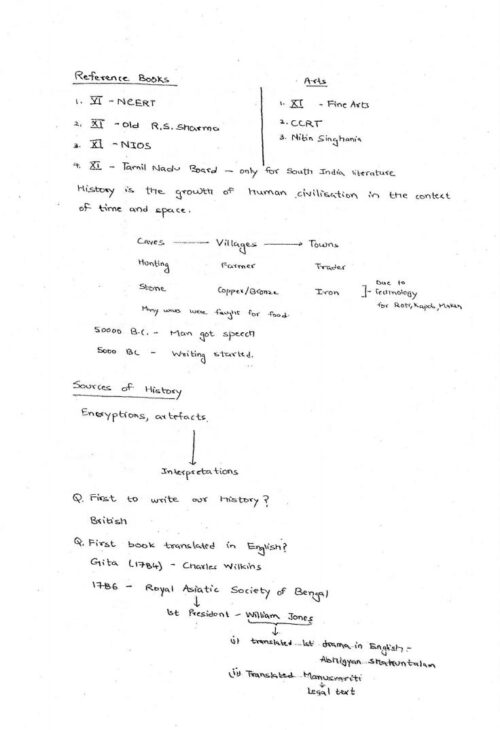 Reference Books
Arts
1. VI - NCERT
1. XI - Fine Arts
2. XI - Old R.S. Sharma
2. CCRT
3. XI - NIOS
3. Nitin Singhania
4. XI - Tamil Nadu Board - only for South India literature
History is the growth of human civilisation in the context
of time and space.
Caves → Villages → Towns
Hunting Farmer Trader
Stone Copper/Bronze Iron ]- Due to
Technology
for Roti, Kapda, Makan
Many wars were faught for food
50000 B.C. - Man got speech
5000 BC - Writing started.
Sources of History
Encryptions, artefacts
↓
Interpretations
Q. First to write our History?
British
Q. First book translated in English?
Gita (1784) - Charles Wilkins
1786 - Royal Asiatic Society of Bengal
↓
1st President - William Jones
↓
i) translated 1st drama in English :-
Abhigyan Shakuntalam
ii) Translated Manusmriti
↓
Legal text